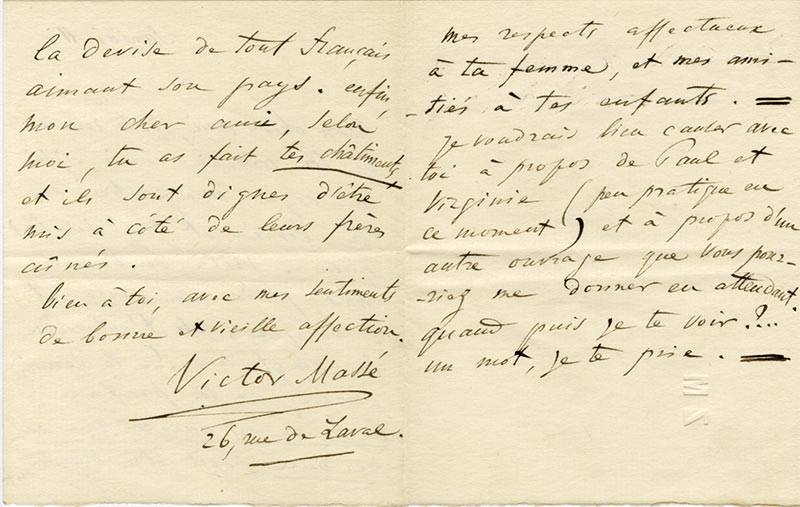 la devise de tout français
aimant son pays. enfin,
mon cher ami, selon
moi, tu as fait tes châtiments
et ils sont dignes d'être
mis à côté de leurs frères
aînés.
bien à toi, avec mes sentiments
de bonne et vieille affection.
Victor Massé
26, rue de Laval.
mes respects affectueux
à ta femme, et mes ami-
-tiés à tes enfants. =
je voudrais bien causer avec
toi à propos de Paul et
Virginie (peu pratique en
ce moment) et à propos d'un
autre ouvrage que vous pour-
-riez me donner en attendant
quand puis je te voir?...
un mot, je te prie. =